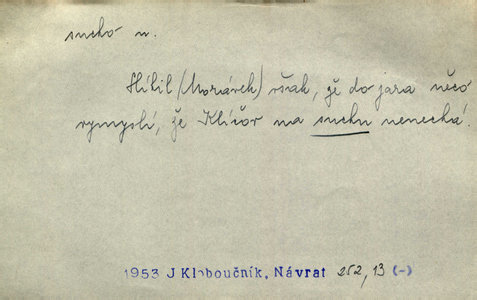 sucho n.
Slíbil (Moriárek) však, že do jara něco
vymyslí, že Klíčov na suchu nenechá.
1953 J Kloboučník, Návrat 252,13 (-)